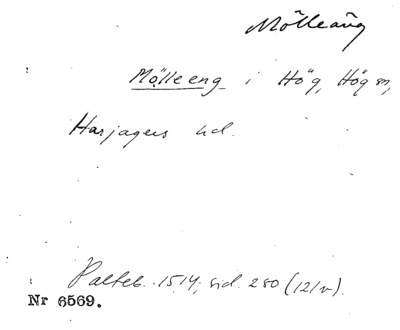 Mölleäng
Mölleeng i Hög, Hög sn,
Harjagers hd.
Palteb. 1514, sid. 280 (121v).
Nr 6569.